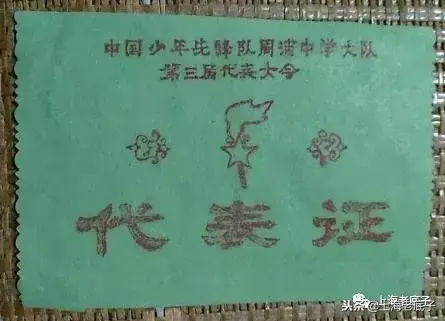 中国少年先锋队周浦中学大队
第三届代表大会
代表证
上海老底子
头条@上海老底子